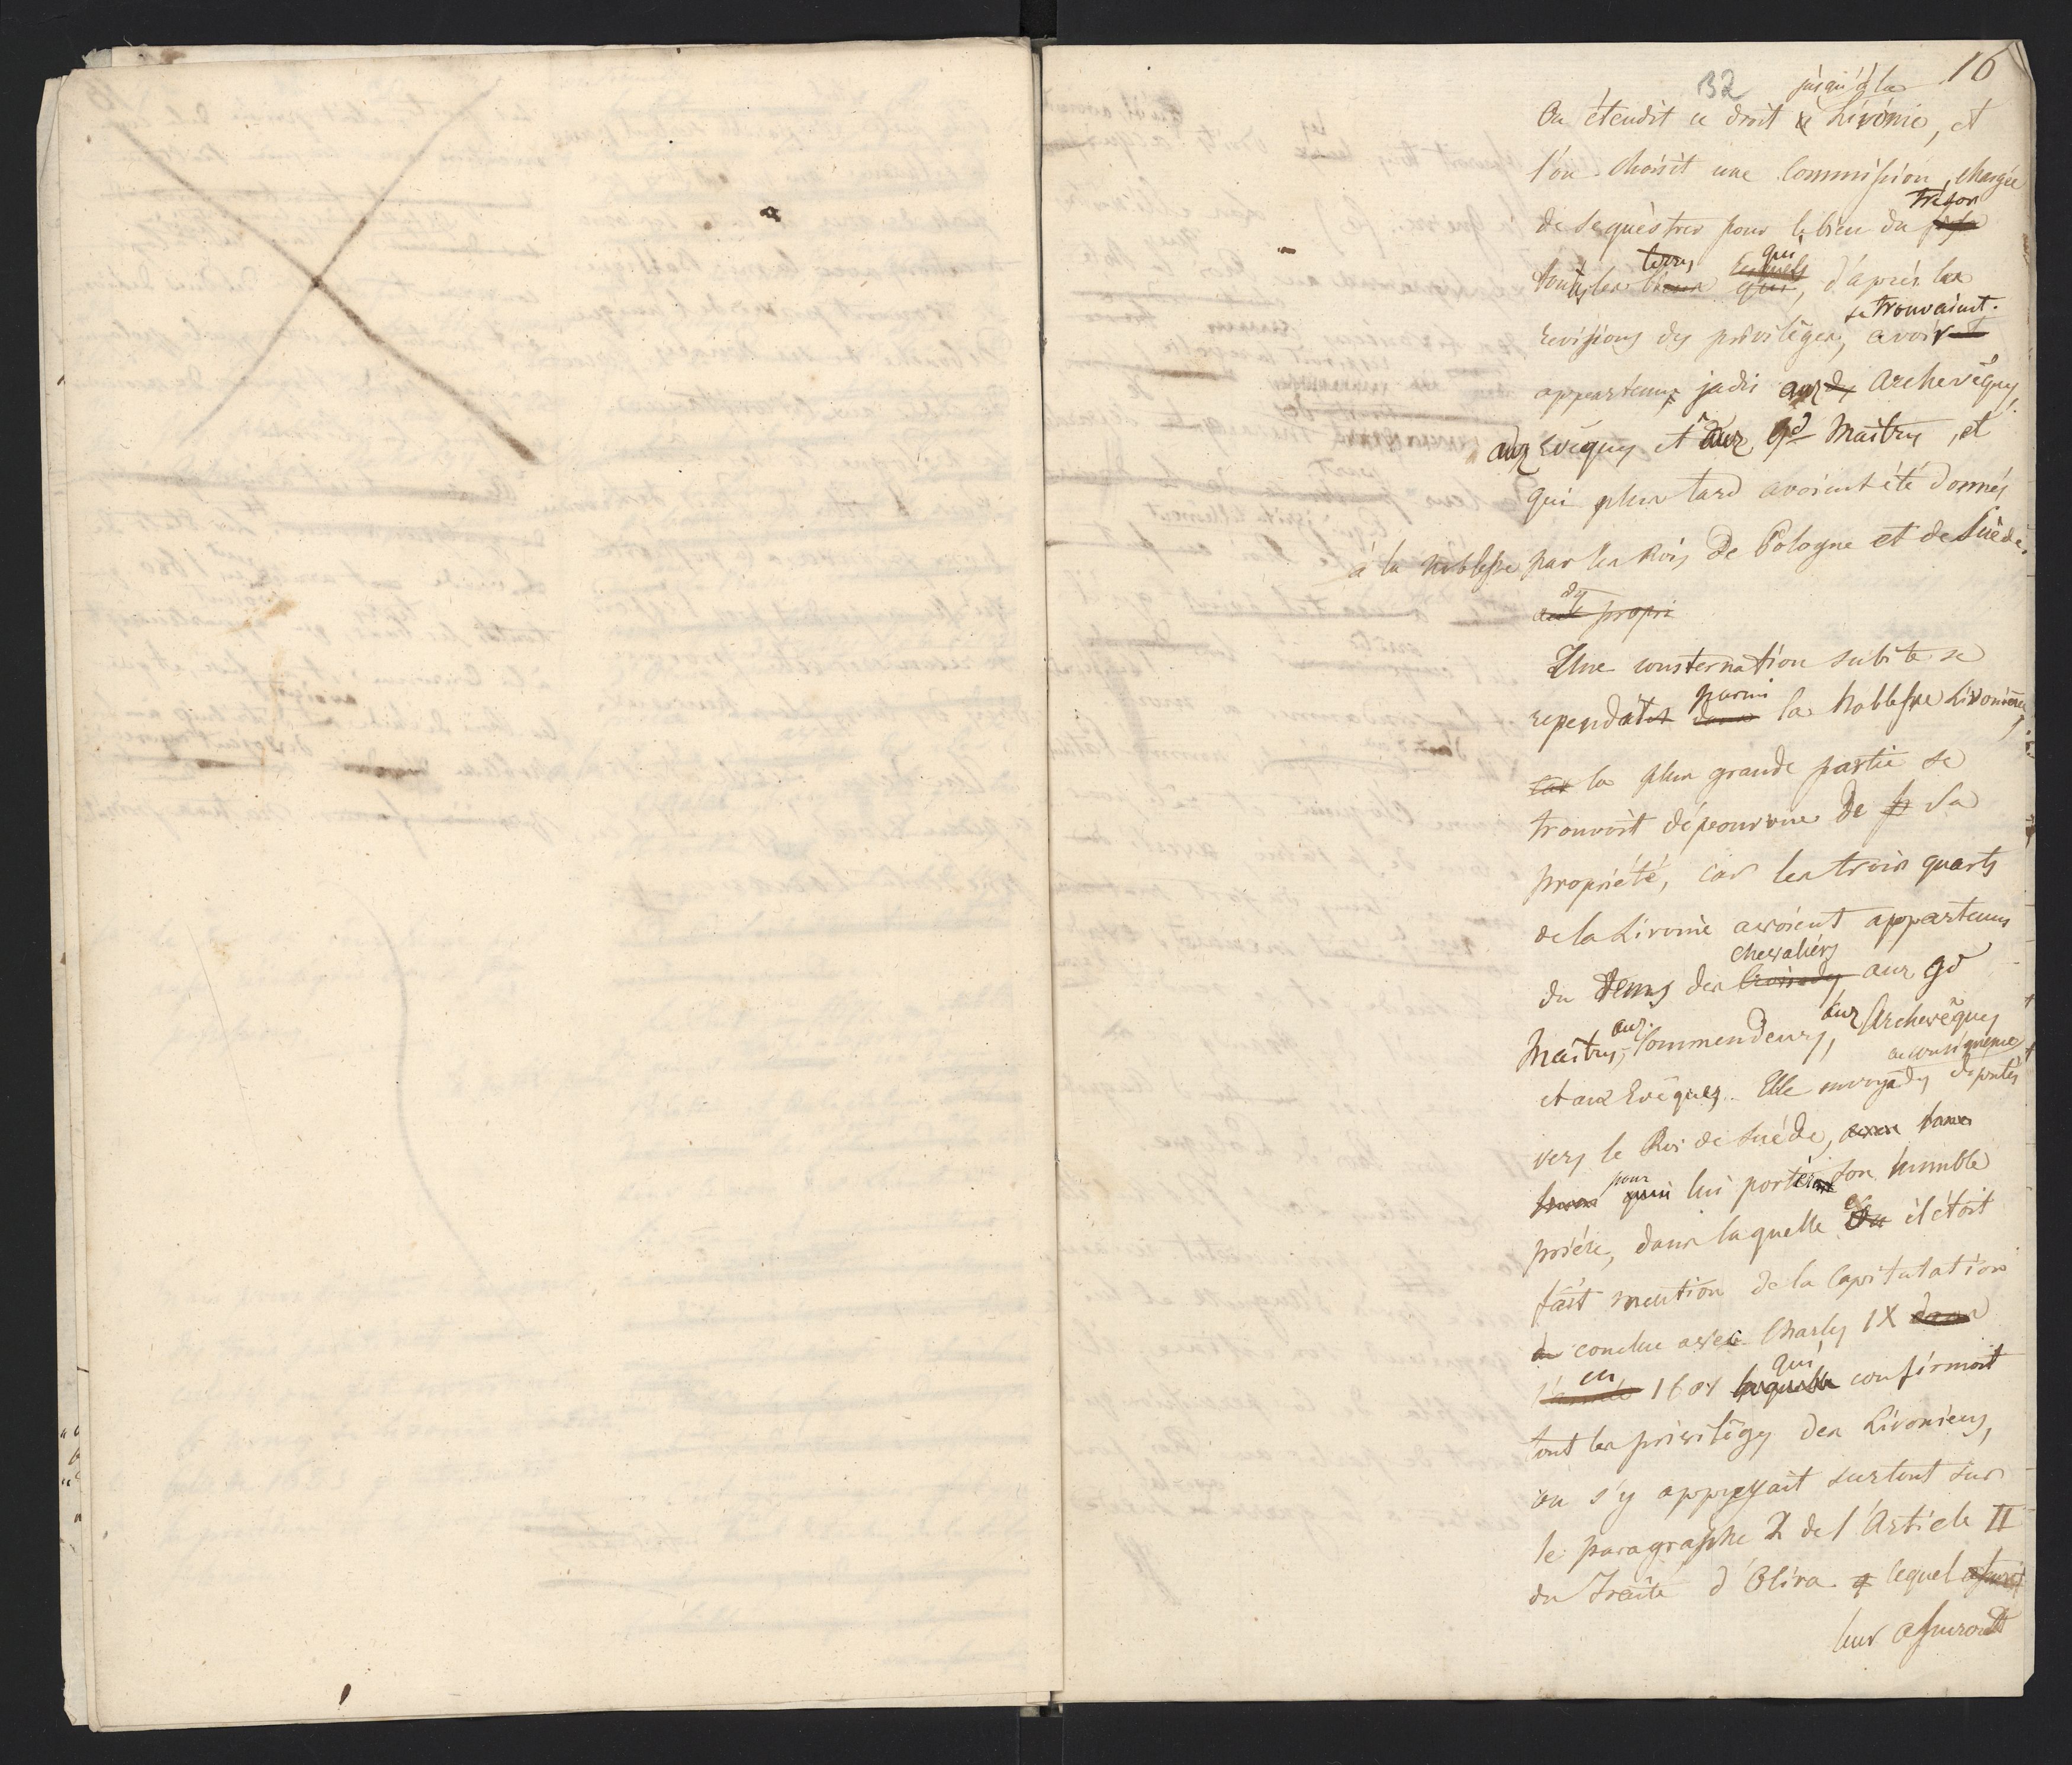 32 16
jusqu'à la
On étendit ce droit à Livonie, et
l'on choisit une Commission, chargée
Trésor
de séquestrer pour le bien du
terres qui
toutes les biens lesquels qui, d'après les
se trouvaient.
revisions des privilèges, avoir
appartenus jadis aux des Archevêques,
aux Evêques et aux Gd Maitres, et
qui plus tard avoient été donnés
à la noblesse par les Rois de Pologne et de Suède.
des
aux propri
Une consternation subite se
parmi
rependit dans la Noblesse Livonienne,
car la plus grande partie se
trouvoit dépourvue de sa
propriété, car les trois quarts
de la Livonie avoient appartenus
chevaliers
du tems des Croisades aux Gd
aux aux Archevêques
Maitres, Commendeurs,
et aux Evêques. Elle envoya des députés
vers le Roi de Suède, avec
pour
qui lui porter son humble
prière, dans laquelle il étoit
fait mention de la Capitulation
conclue avec Charles IX dans
en qui
l'année 1601 laquelle confirmoit
tout les privilèges des Livoniens,
on s'y appuyait surtout sur
le paragraphe 2 de l'Article II
du Traité d'Oliva lequel assuroit
leur assuroit